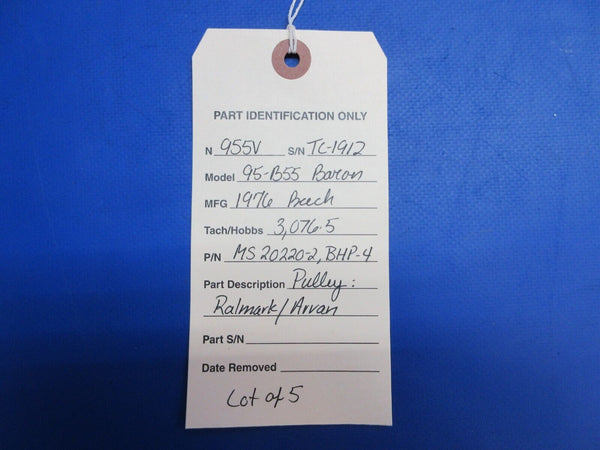 PART IDENTIFICATION ONLY
N 955V S/N TC-1912
Model 95-B55 Baron
MFG 1976 Beech
Tach/Hobbs 3,076.5
P/N MS 20220-2, BHP-4
Part Description Pulley:
Ralmark/Arvan
Part S/N
Date Removed
Lot of 5